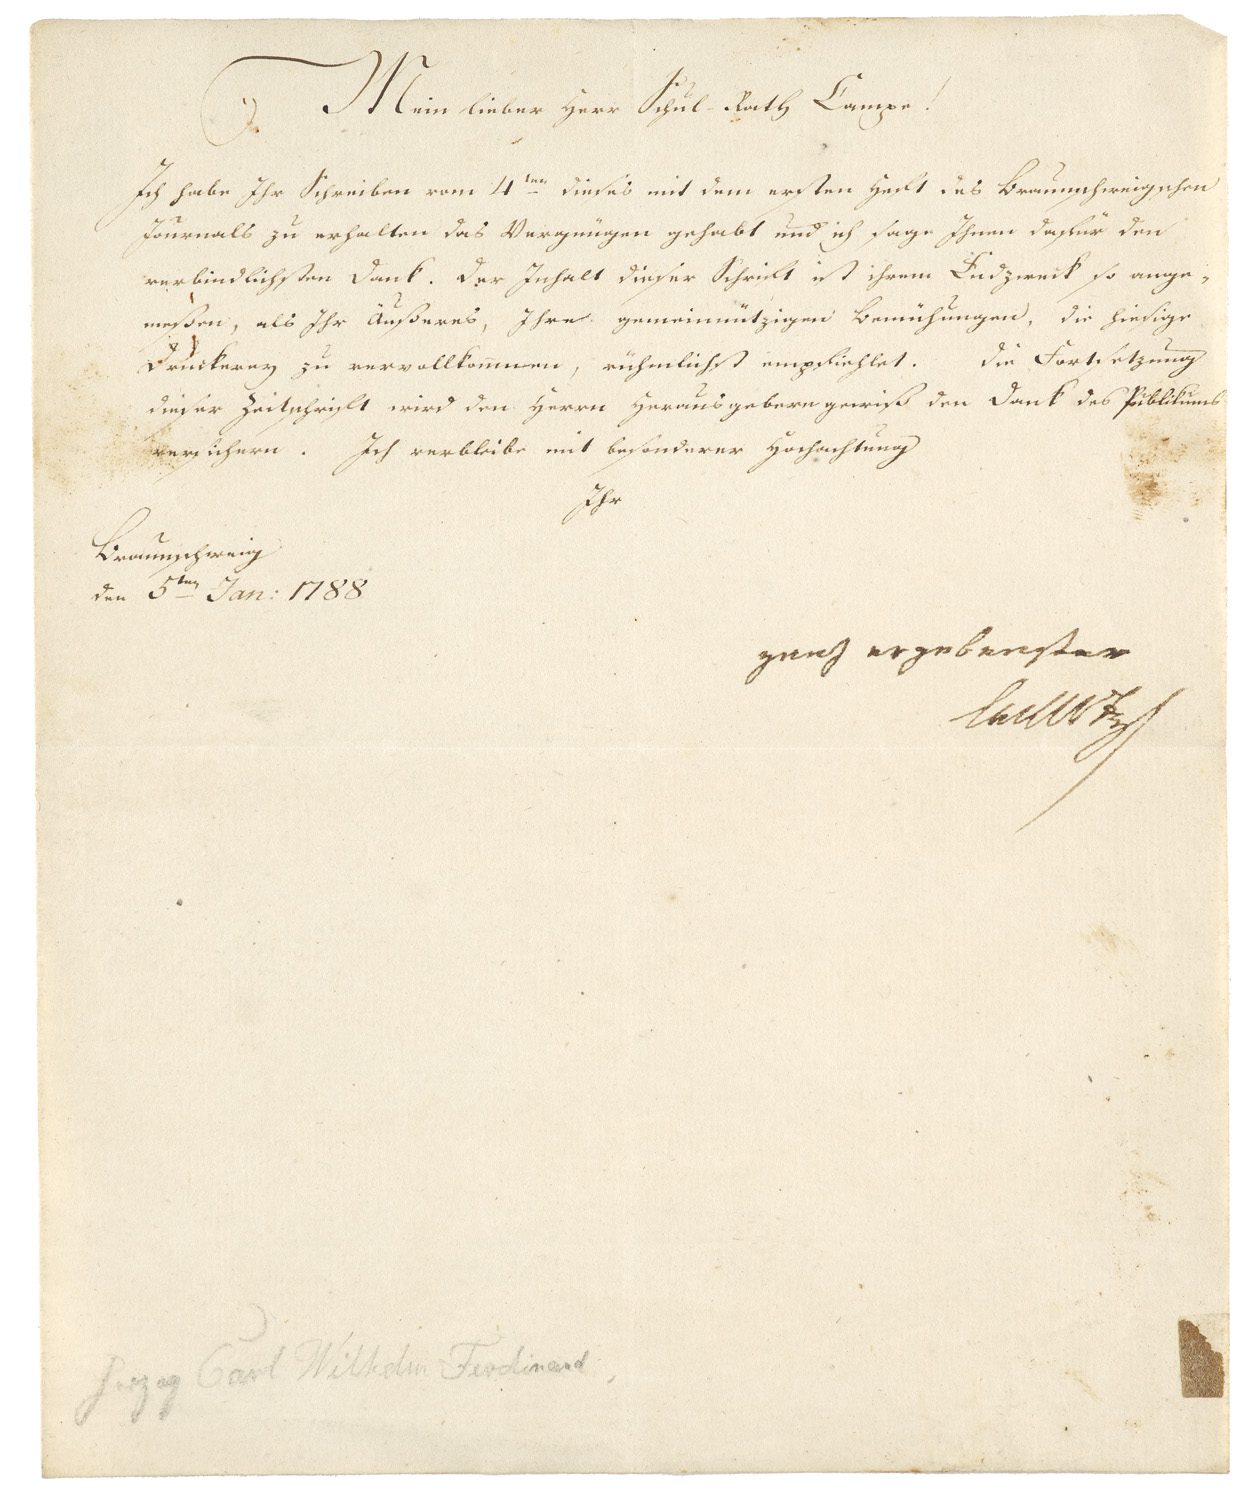 Mein lieber Herr Schul-Rath Campe!
Ich habe Ihr Schreiben vom 4ten dieses mit dem ersten Heft des Braunschweigschen
Journals zu erhalten das Vergnügen gehabt und ich sage Ihnen dafür den
verbindlichsten Dank. Der Inhalt dieser Schrift ist ihrem Endzweck so ange-
meßen, als Ihr Äußeres, Ihre gemeinnützigen Bemühungen, die hiesige
Druckerey zu vervollkommnen, rühmlichst empfiehlet. Die Fortsetzung
dieser Zeitschrift wird den Herrn Herausgebern gewiß den Dank des Publikums
versichern. Ich verbleibe mit besonderer Hochachtung
Ihr
Braunschweig
den 5ten Jan: 1788
ganz ergebenster
Herzog Carl Wilhelm Ferdinand,